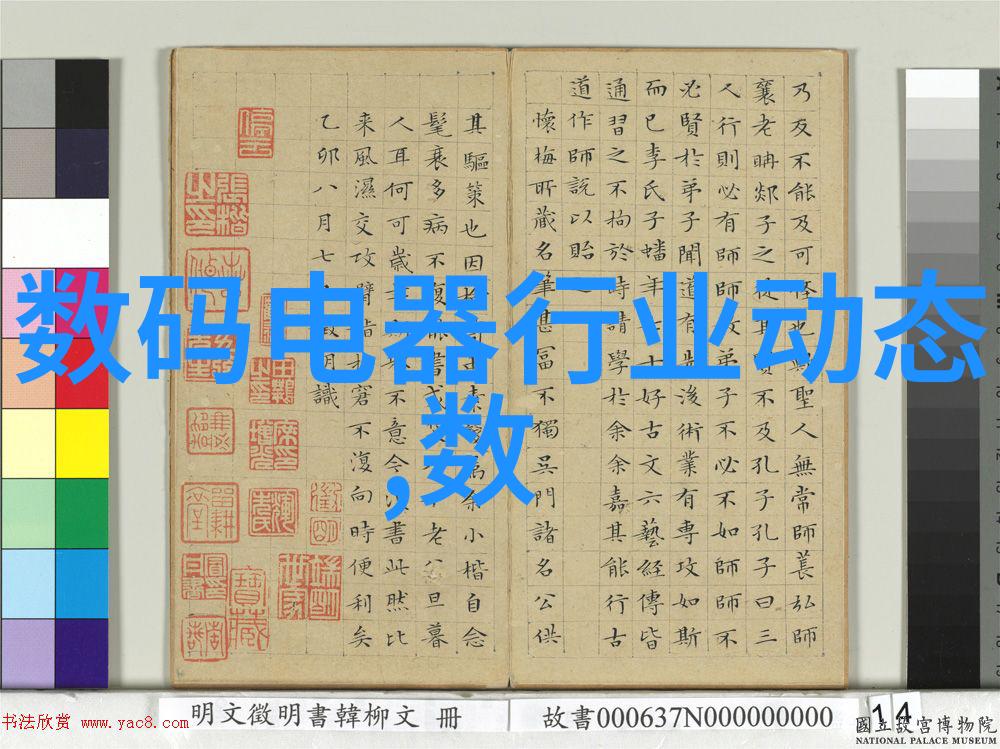 乃反不能及可怪也歟聖人無常師萇弘師
襄老聃郯子之徒其賢不及孔子孔子曰三
人行則必有師師故弟子不必不如師師不
必賢於弟子聞道有先後術業有專攻如斯
而已李氏子蟠年十七好古文六藝經傳皆
通習之不拘於時請學於余余嘉其能行古
道作師說以貽之
懷梅所藏名筆甚富不獨吳門諸名公供
其驅策也因 余小楷自念
髦衰多病不復 書 老 旦暮
人耳何可歲 不意今 書此然比
来風濕交攻臂指 窘不復向時便利矣
乙卯八月七 徵明識
数码电器行业动态
,数
明文徵明書韓柳文 冊
故書000637N000000000
14
书法欣赏 www.yac8.com
國立故宮博物院
NATIONAL PALACE MUSEUM